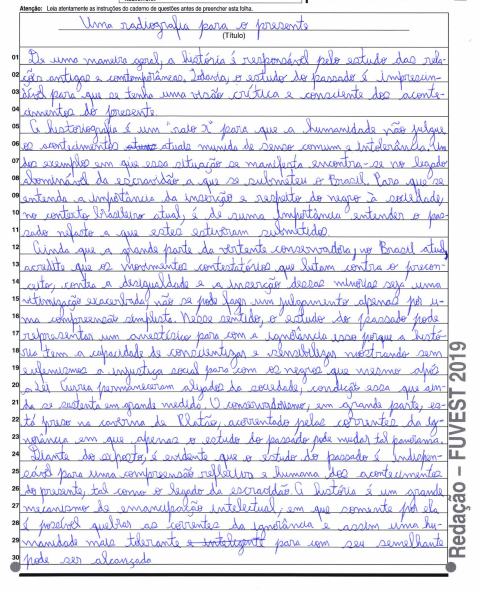 Atenção: Leia atentamente as instruções do caderno de questões antes de preencher esta folha.
Uma radiografia para o presente
(Título)
01 De uma maneira geral, a história é responsável pelo estudo das rela-
02 ções antigas e contemporâneas. Todavia, o estudo do passado é imprescin-
03 dível para que se tenha uma visão crítica e consciente dos aconte-
04 cimentos do presente.
05 A historiografia é um "raio X" para que a humanidade não julgue
06 os acontecimentos atuais munida de senso comum e intolerância. Um
07 dos exemplos em que essa situação se manifesta encontra-se no legado
08 abominável da escravidão a que se submeteu o Brasil. Para que se
09 entenda a importância da inserção e respeito do negro à sociedade,
10 no contexto brasileiro atual, é de suma importância entender o pas-
11 sado nefasto a que estes estiveram submetidos.
12 Ainda que a grande parte da vertente conservadora, no Brasil atual,
13 acredite que os movimentos contestatórios que lutam contra o precon-
14 ceito, contra a desigualdade e a inserção dessas minorias seja uma
15 vitimização exacerbada, não se pode fazer um julgamento apenas por u-
16 ma compreensão simplista. Nesse sentido, o estudo do passado pode
17 representar um anestésico para com a ignorância isso porque a histó-
18 ria tem a capacidade de conscientizar e sensibilizar mostrando sem
19 eufemismos a injustiça social para com os negros que mesmo após
20 a Lei Áurea permaneceram alijados da sociedade, condição essa que ain-
21 da se sustenta em grande medida. O conservadorismo, em grande parte, es-
22 tá preso na caverna de Platão, acorrentado pelas correntes da ig-
23 norância em que apenas o estudo do passado pode mudar tal panorama.
24 Diante do exposto, é evidente que o estudo do passado é indispen-
25 sável para uma compreensão reflexiva e humana dos acontecimentos
26 do presente, tal como o legado da escravidão. A história é um grande
27 mecanismo de emancipação intelectual, em que somente por ela
28 é possível quebrar as correntes da ignorância e assim uma hu-
29 manidade mais tolerante e inteligente para com seu semelhante
30 pode ser alcançada
Redação – FUVEST 2019